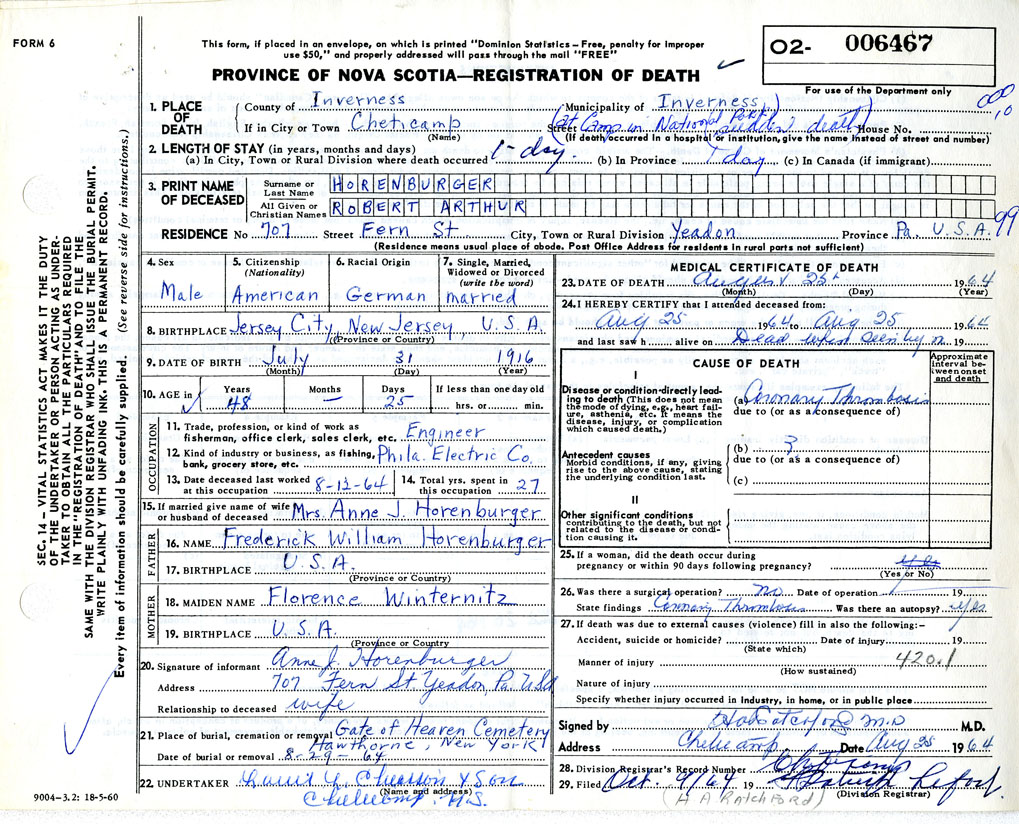 FORM 6
This form, if placed in an envelope, on which is printed "Dominion Statistics – Free, penalty for improper
use $50," and properly addressed will pass through the mail "FREE"
PROVINCE OF NOVA SCOTIA—REGISTRATION OF DEATH
O2- 006467
For use of the Department only
1. PLACE OF DEATH
County of Inverness Municipality of Inverness
If in City or Town Cheticamp Street (At Camp in National Park) House No.
(sudden death)
(Name) (If death occurred in a hospital or institution, give the name instead of street and number)
2. LENGTH OF STAY (in years, months and days)
(a) In City, Town or Rural Division where death occurred 1-day. (b) In Province 1 day (c) In Canada (if immigrant)
3. PRINT NAME OF DECEASED
Surname or Last Name HORENBURGER
All Given or Christian Names ROBERT ARTHUR
RESIDENCE No 707 Street Fern St City, Town or Rural Division Yeadon Province Pa. U.S.A. 99
(Residence means usual place of abode. Post Office Address for residents in rural parts not sufficient)
4. Sex
Male
5. Citizenship
(Nationality)
American
6. Racial Origin
German
7. Single, Married,
Widowed or Divorced
(write the word)
married
8. BIRTHPLACE Jersey City, New Jersey, U.S.A.
(Province or Country)
9. DATE OF BIRTH July 31 1916
(Month) (Day) (Year)
10. AGE in Years Months Days If less than one day old
48 — 25 hrs. or min.
OCCUPATION
11. Trade, profession, or kind of work as
fisherman, office clerk, sales clerk, etc. Engineer
12. Kind of industry or business, as fishing,
bank, grocery store, etc. Phila. Electric Co.
13. Date deceased last worked
at this occupation 8-13-64
14. Total yrs. spent in
this occupation 27
15. If married give name of wife
or husband of deceased Mrs. Anne J. Horenburger
FATHER
16. NAME Frederick William Horenburger
17. BIRTHPLACE U.S.A.
(Province or Country)
MOTHER
18. MAIDEN NAME Florence Winternitz
19. BIRTHPLACE U.S.A.
(Province or Country)
20. Signature of informant Anne J. Horenburger
Address 707 Fern St. Yeadon, Pa. USA
Relationship to deceased wife
21. Place of burial, cremation or removal Gate of Heaven Cemetery
Hawthorne, New York
Date of burial or removal 8-29-64
22. UNDERTAKER & Son
(Name and address)
N.S.
MEDICAL CERTIFICATE OF DEATH
23. DATE OF DEATH August 25th 1964
(Month) (Day) (Year)
24. I HEREBY CERTIFY that I attended deceased from:
Aug 25 1964 to Aug 25 1964
and last saw h alive on Dead when seen by m 19
CAUSE OF DEATH
Approximate
interval between onset
and death
I
Disease or condition directly leading to death (This does not mean
the mode of dying, e.g., heart failure, asthenia, etc. It means the
disease, injury, or complication
which caused death.)
(a) Coronary Thrombosis
due to (or as a consequence of)
Antecedent causes
Morbid conditions, if any, giving
rise to the above cause, stating
the underlying condition last.
(b) ?
due to (or as a consequence of)
(c)
II
Other significant conditions
contributing to the death, but not
related to the disease or condition causing it.
25. If a woman, did the death occur during
pregnancy or within 90 days following pregnancy?
(Yes or No)
26. Was there a surgical operation? no Date of operation 19
State findings Coronary Thrombosis Was there an autopsy? yes
27. If death was due to external causes (violence) fill in also the following:-
Accident, suicide or homicide? Date of injury 19
(State which)
Manner of injury 420.1
(How sustained)
Nature of injury
Specify whether injury occurred in industry, in home, or in public place
Signed by M.D. M.D.
Address Cheticamp Date Aug 25 1964
28. Division Registrar's Record Number
29. Filed Oct 9/64 19
(Division Registrar)
(H A RATCHFORD)
9004-3.2: 18-5-60
SEC. 14 – VITAL STATISTICS ACT MAKES IT THE DUTY
OF THE UNDERTAKER OR PERSON ACTING AS UNDERTAKER TO OBTAIN ALL THE PARTICULARS REQUIRED
IN THE "REGISTRATION OF DEATH" AND TO FILE THE
SAME WITH THE DIVISION REGISTRAR WHO SHALL ISSUE THE BURIAL PERMIT.
WRITE PLAINLY WITH UNFADING INK. THIS IS A PERMANENT RECORD.
Every item of information should be carefully supplied. (See reverse side for instructions.)